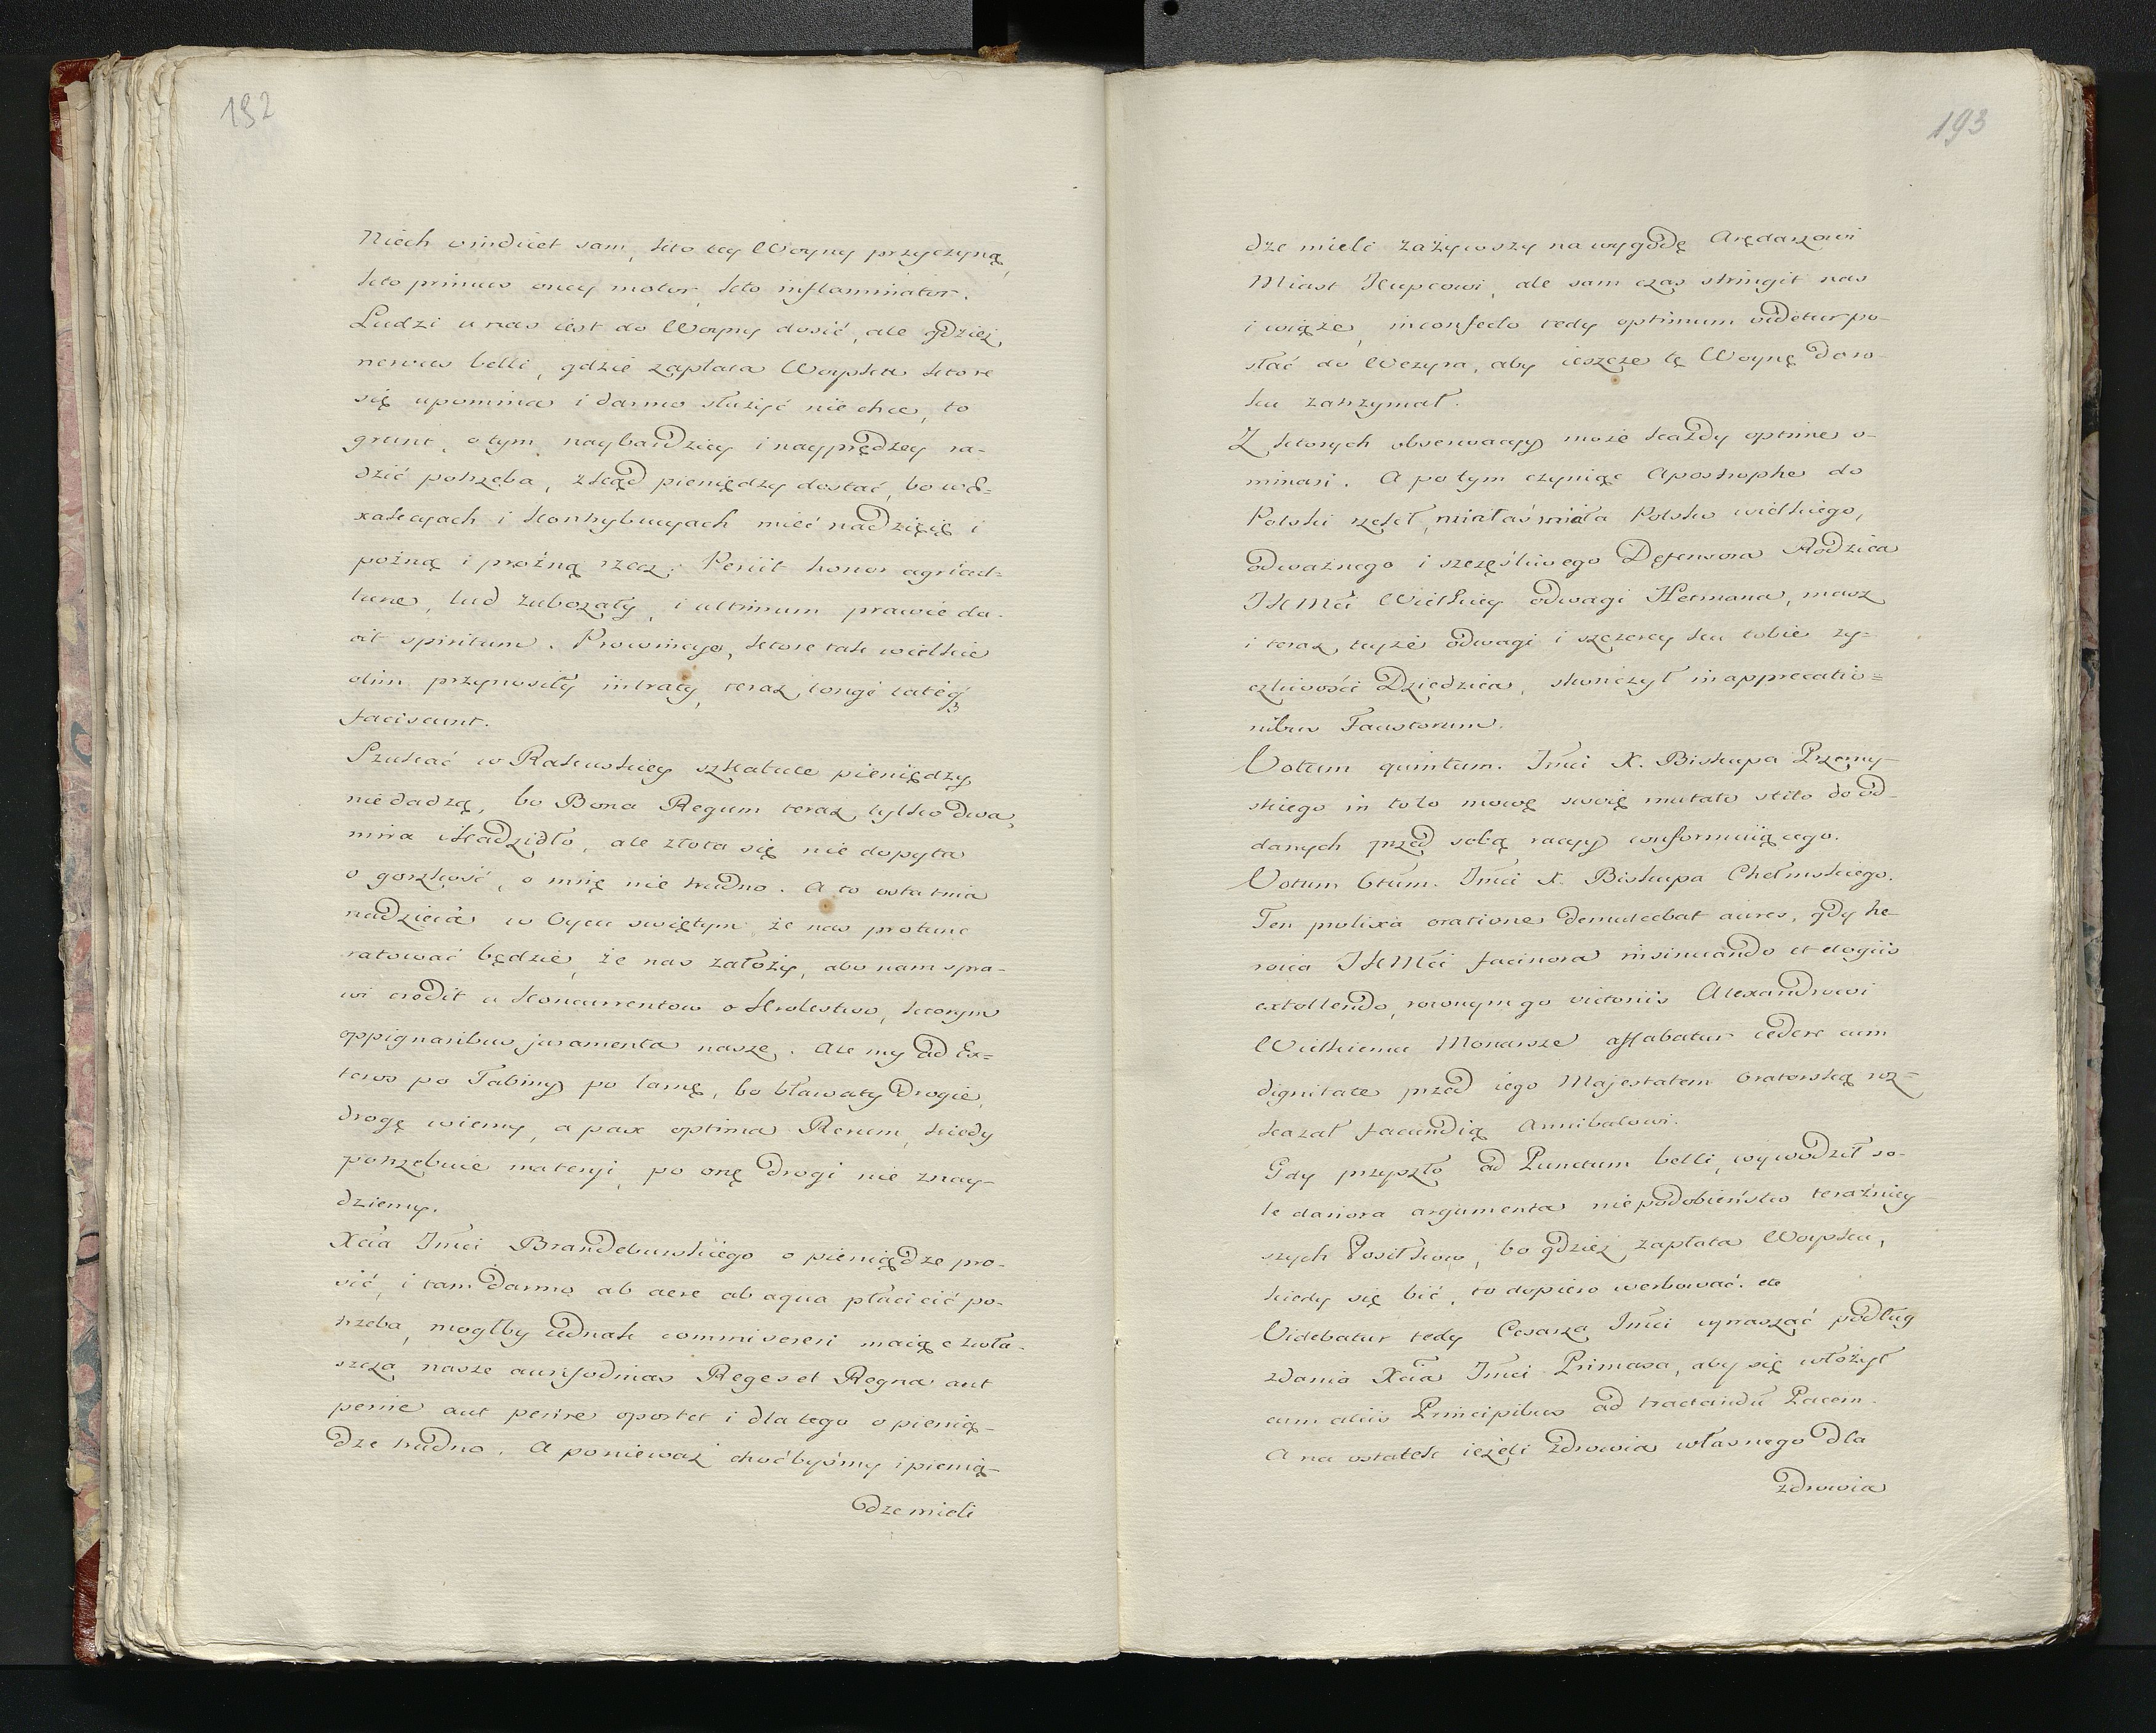 192
Niech vindicet sam, kto tey Woyny przyczyną,
kto primus oney motor, kto inflammator.
Ludzi u nas iest do Woyny dosić, ale gdziez
nervus belli, gdzie zapłata Woyska ktore
się upomina i darmo służyć nie chce, to
grunt, o tym naybardziey i nayprędzey ra-
dzić potrzeba, zkąd pieniędzy dostać, bo w E-
xakcyach i Kontrybucyach mieć nadzieię i
poźną i prożną rzecz. Periit honor agricul-
turae, lud zubozały, i ultimum prawie da-
vit spiritum. Prowincye, ktore tak wielkie
olim przynosiły intraty, teraz longe lateq3
faciscunt.
Szukać w Rakuskiey szkatule pieniędzy,
nie dadzą, bo Bona Regum teraz tylko dwa,
mira Kadzidło, ale złota się nie dopyta
o gorzkość, o mirę nie trudno. A to ostatnia
nadzieia w Oycu swiętym że nas protunc
ratować będzie, że nas założy, abo nam spra-
wi credit u Konkurrentow o Krolestwo, ktorym
oppignoribus juramenta nasze. Ale my ad Ex-
teros po Tabiny po lamę, bo bławaty drogie,
drogę wiemy, a pax optima Rerum, kiedy
potrzebuie materyi, po onę drogi nie znay-
dziemy.
Xcia Jmci Brandeburskiego o pieniądze pro-
sić, i tam darmo ab aere ab aqua płacicić po-
trzeba, mogłby iednak commisereri maiąc zwła-
szcza nasze aurifodinas Reges et Regna aut
perire aut perire oportet i dla tego o pienią-
dze trudno. A poniewaz choćbyśmy i pienią-
dze mieli
193
dze mieli zażywszy na wygodę Arędarzowi
Miast Kupcowi, ale sam czas stringit nas
i wiąże, in confesso tedy optimum videtur po-
słać do Wezyra, aby ieszcze tę Woynę do ro-
ku zatrzymał.
Z ktorych obserwacyy może każdy optime o-
minari. A potym czyniąc Apostrophe do
Polski rzekł, miałaś miła Polsko wielkiego,
odważnego i szczęśliwego Defensora Rodzica
JKMći Wielkiey odwagi Hetmana, masz
i teraz teyże odwagi i szczerey ku tobie ży-
czliwości Dziedzica, skończył in apprecatio-
nibus Faustorum.
Votum quintum. Jmci X. Biskupa Przemy-
skiego in toto mowę swoię mutato stilo do od-
danych przed sobą racyy conformuiącego.
Votum 6tum. Jmci X. Biskupa Chełmskiego.
Ten prolixa oratione demulcebat aures, gdy he-
roica JKMći facinora insinuando et elogiis
extollendo, rownym go victoriis Alexandrowi
Wielkiemu Monarsze affabatur cedere cum
dignitate przed iego Majestatem Oratorską roz-
kazał facundią Annibalowi.
Gdy przyszło ad Punctum belli, wywodził so-
lidariora argumenta niepodobieństwo teraźniey
szych Posiłkow, bo gdziez zapłata Woyska,
kiedy się bić, to dopiero werbować. etc
Videbatur tedy Cesarza Jmci upraszać podług
zdania Xcia Jmci Primasa, aby się włożył
cum aliis Principibus ad tractandū Pacem.
A na ostatek ieżeli zdrowia własnego dla
zdrowia